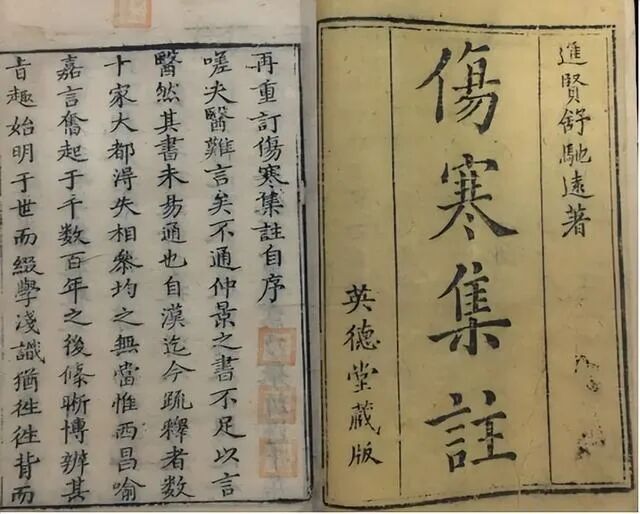 進賢舒馳遠著
傷寒集註
英德堂藏版
再重訂傷寒集註自序
嗟夫醫難言矣不通仲景之書不足以言
醫然其書未易通也自漢迄今疏釋者數
十家大都得失相參均之無當惟西昌喻
嘉言奮起于千數百年之後條晰博辨其
旨趣始明于世而綴學淺識猶徃徃背而